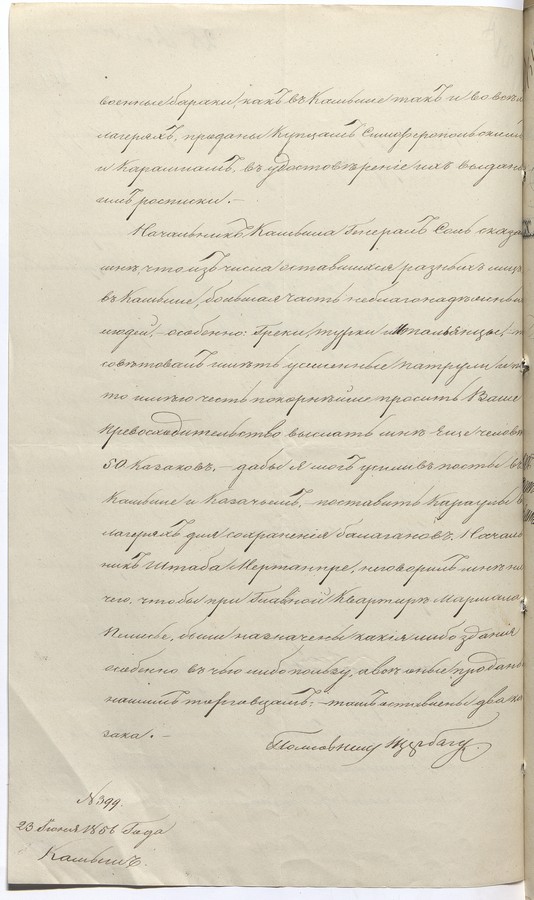 военные бараки, какъ въ Камыше такъ и во всѣхъ
лагеряхъ, проданы Купцамъ Симферопольскимъ
и Караимамъ, въ удостовѣреніе ихъ выданы
имъ росписки. —
Начальникъ Камыша Генералъ Соль сказалъ
мнѣ, что изъ числа оставшихся разныхъ лицъ
въ Камыше, большая часть неблагонадежныхъ
людей, — особенно: Греки, турки и Итальянцы, —
совѣтовалъ имѣть усиленные патрули,
то имѣю честь покорнѣйше просить Ваше
Превосходительство выслать мнѣ еще человѣкъ
50 Казаковъ, — дабы я могъ усиливъ посты въ
Камыше и Казачьемъ, — поставить Караулы въ
лагеряхъ для сохраненія балагановъ, Началь
никъ Штаба Мертанпре, неговорилъ мнѣ ни
чего, чтобы при Главной Квартирѣ Маршала
Пелисье, были назначены какія либо зданія
особенно въ чью либо пользу, а всѣ оные проданы
нашимъ торговцамъ; — тамъ оставлены два ка
зака. —
Полковникъ
№ 399.
23 Іюня 1856 Года
Камышъ.